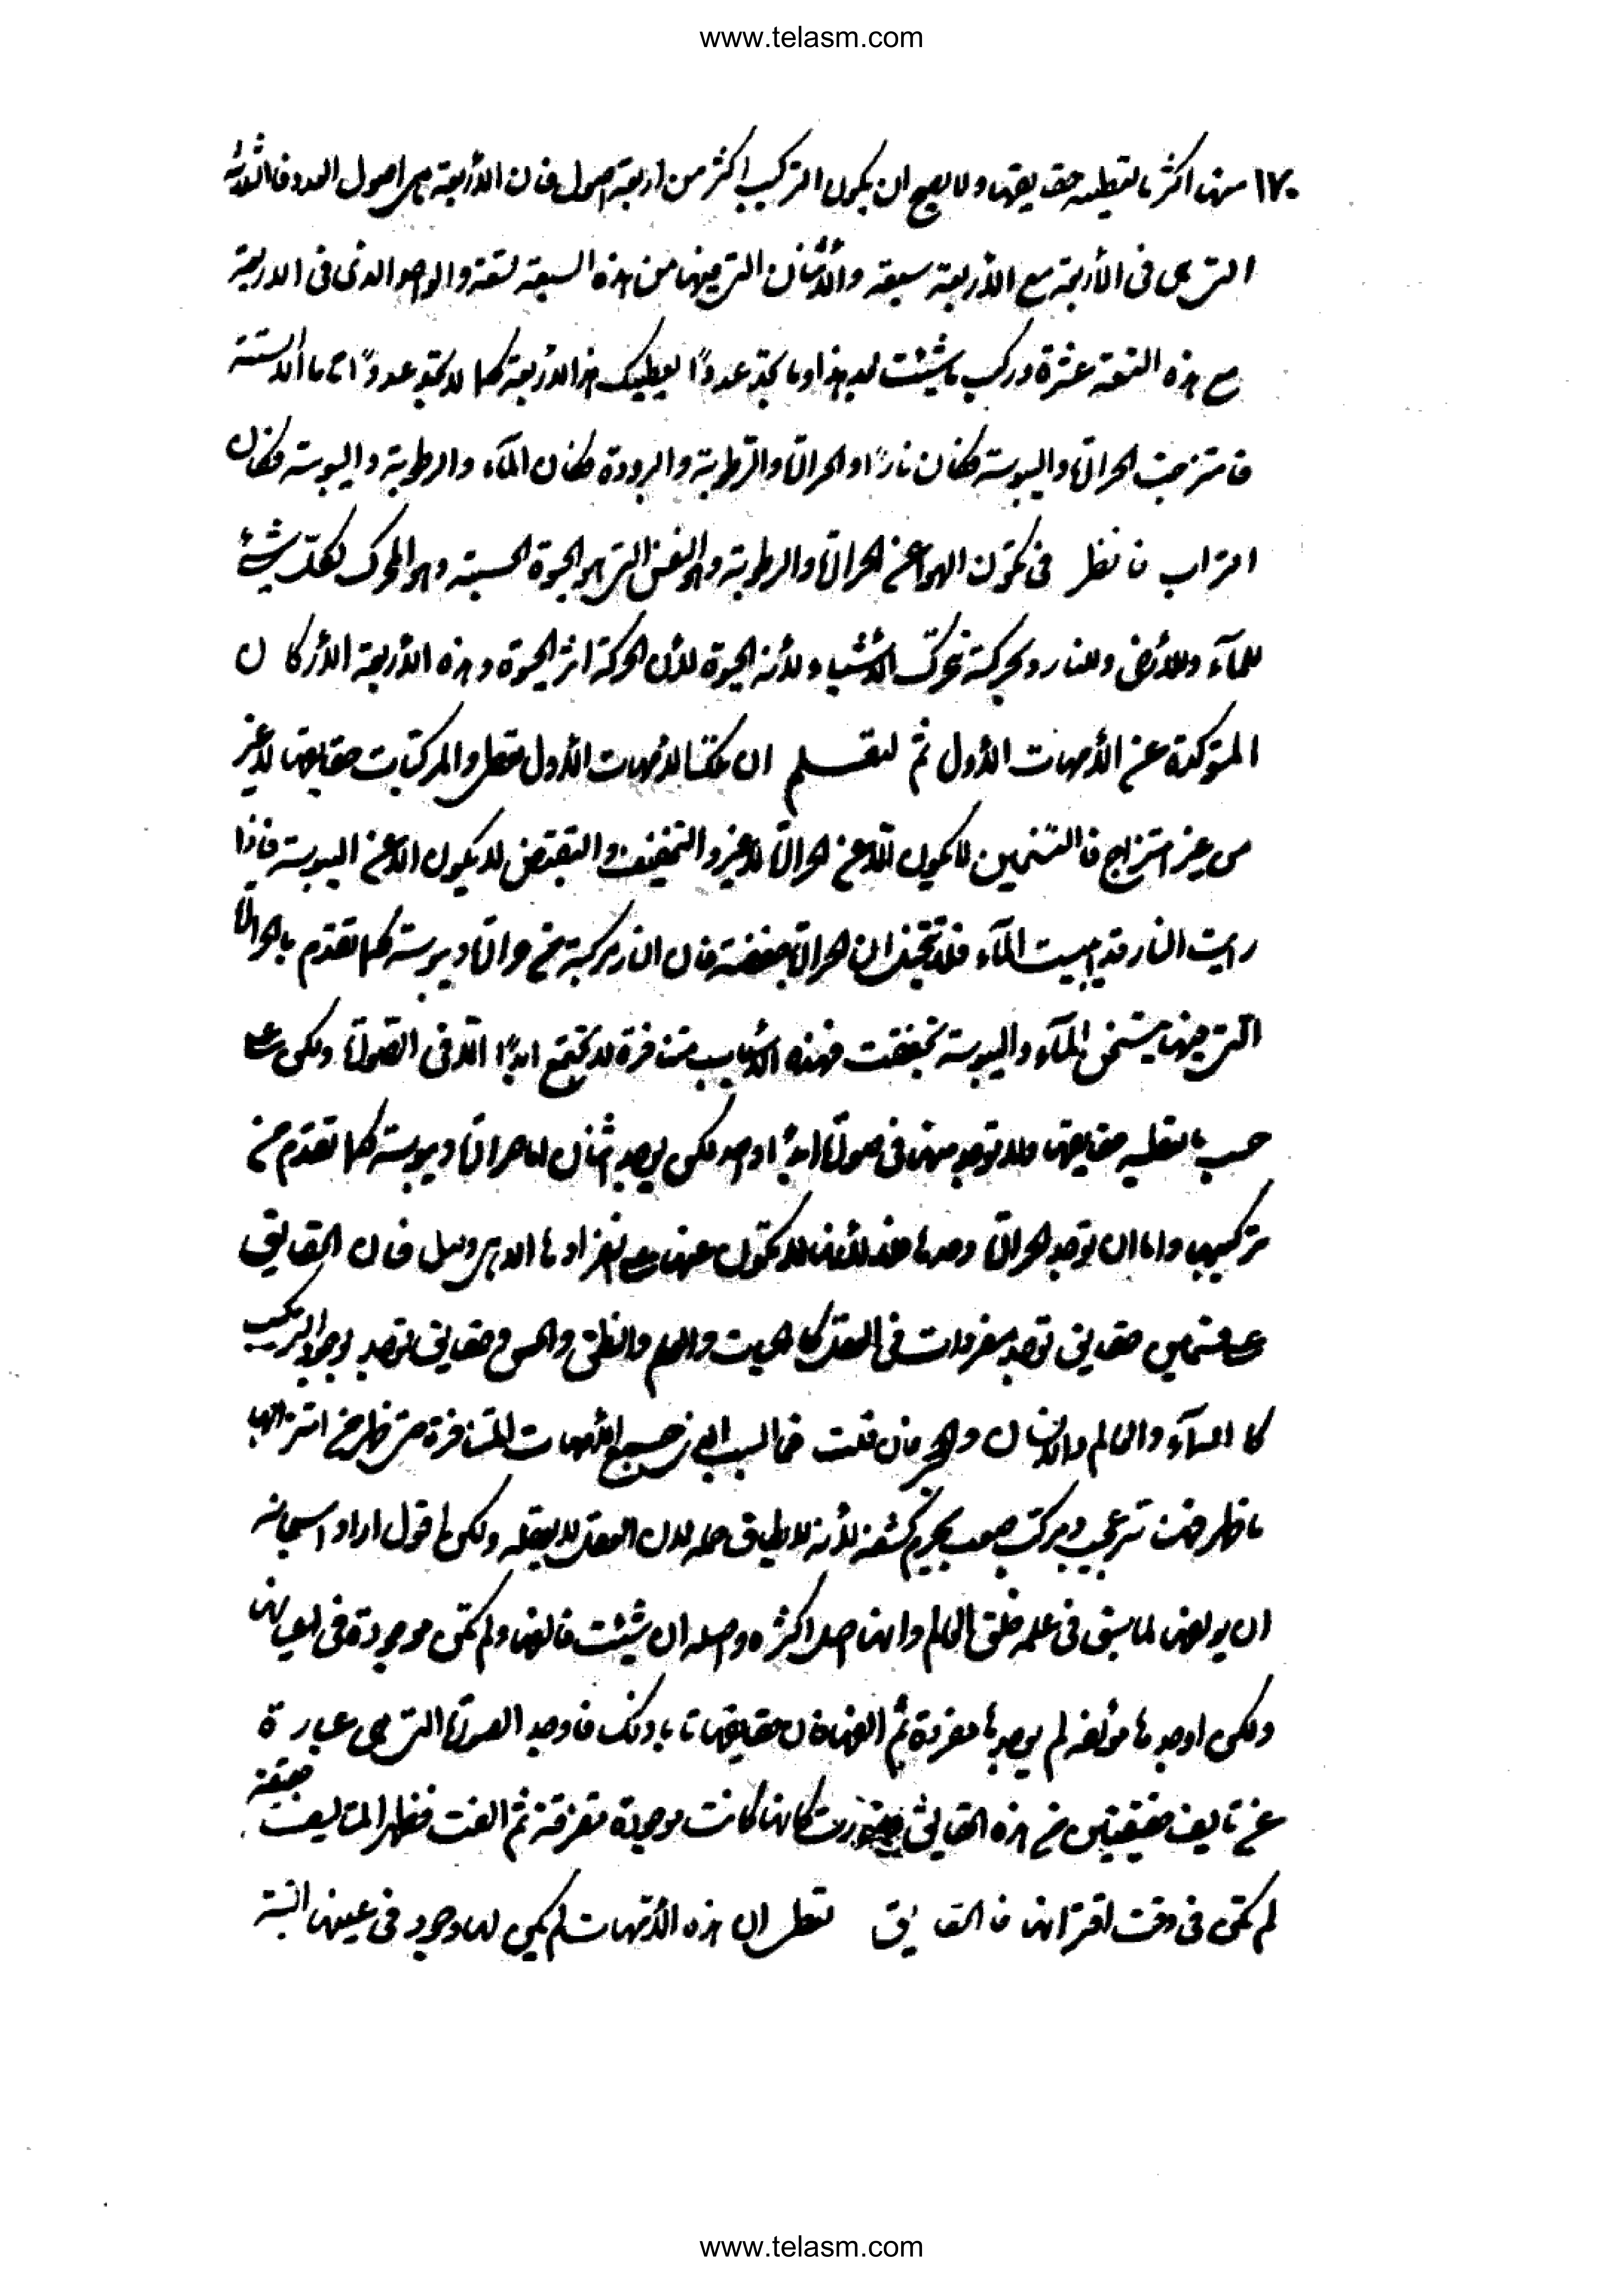 www.telasm.com
١٧٠ منها اكثر ما تعطيه حقايقها ولا يصح ان يكون التركيب اكثر من اربعة اصول فان الأربعة هي اصول العدد فالثلاثة
التي في الأربعة مع الأربعة سبعة والأثنان التي فيها من هذه السبعة تسعة والواحد الذي في الاربعة
مع هذه التسعة عشرة وركب ما شئت بعد هذا وما تجد عددًا يعطيك هذا الا الأربعة كما لا تجد عددًا تاما الا الستة
فامتزجت الحرارة واليبوسة فكان نارًا والحرارة والرطوبة والبرودة فكان المآء والرطوبة واليبوسة فكان
التراب فانظر في تكون الهوا عن الحرارة والرطوبة وهو النفس التي هو الحيوة الحسية وهو المحرك لكل شيء
للمآء وللأرض وللنار وبحركته تحرك الأشياء لأنه الحيوة لأن الحركة اثر الحيوة وهذه الأربعة الأركان
المتولدة عن الأمهات الأول ثم لتعلم ان تلك الأمهات الأول تعطي في المركبات حقايقها لا غير
من غير امتزاج فالتسخين لا يكون الا عن الحرارة لا غير والتجفيف والتقبض لا يكون الا عن اليبوسة فاذا
رايت النار قد ايبست المآء فلا تتخيل ان الحرارة جففته فان النار مركبة من حرارة ويبوسة كما تقدم بالحرارة
التي فيها يتسخن المآء واليبوسة تجففت فهذه الأمهات متنافرة لا تجتمع ابدًا الا في الصورة ولكن على
حسب ما تعطيه حقايقها ولا توجد منها في صورة ابدًا واحد لكن يوجد اثنان اما حرارة ويبوسة كما تقدم من
تركيبها واما ان توجد الحرارة وحدها فلا لأنها لا يكون عنها على انفرادها الا هي وصل فان الحقايق
على قسمين حقايق توجد مفردات في العقل كالحيوة والعلم والنطق والحس وحقايق توجد بوجود التركيب
كالسمآء والعالم والانسان والحجر فان قلت فما السبب الذي جمع الأمهات المتنافرة حتى ظهر من امتزاجها
ما ظهر فهنا سر عجيب ومركب صعب يحرم كشفه لأنه لا يطاق حمله لان العقل لا يعقله ولكن اقول اراد سبحانه
ان يولفها لما سبق في علمه خلق العالم وانها اصل اكثره واصله ان شئت فالفها ولم تكن موجودة في اعيانها
ولكن اوجدها مؤلفة لم يوجدها مفردة ثم الفها فان حقايقها تابا ذلك فاوجد الصورة التي هي عبارة
عن تاليف حقيقتين من هذه الحقايق فصارت كانها كانت موجودة متفرقة ثم الفت فظهر للتاليف حقيقة
لم تكن في وقت افتراقها فالحقايق تعطي ان هذه الأمهات لم يكن لها وجود في عينها البتة
www.telasm.com